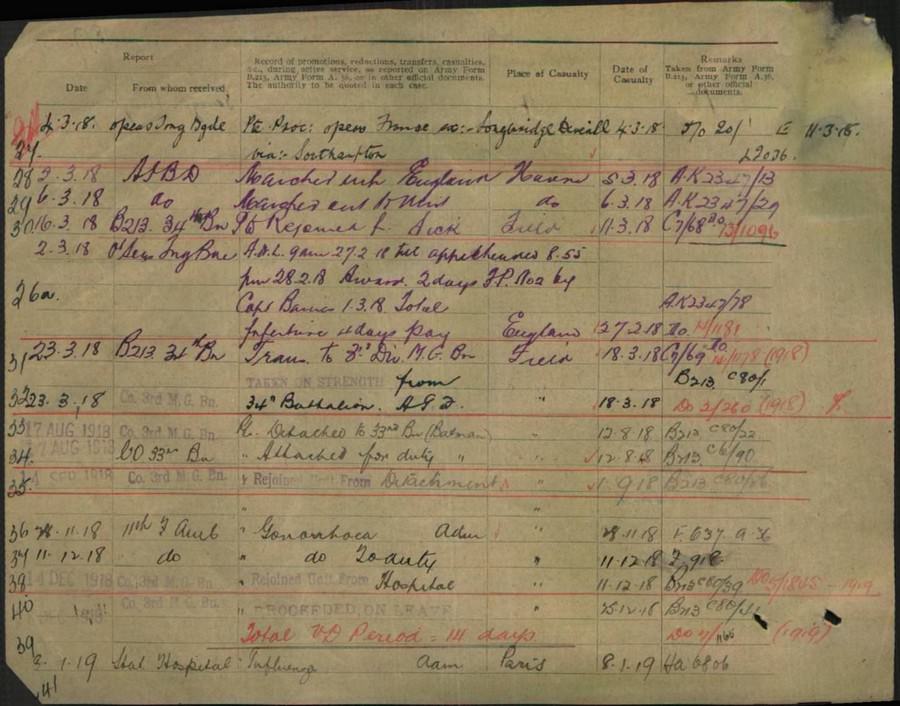 Report
Record of promotions, reductions, transfers, casualties,
&c., during active service, as reported on Army Form
B.213, Army Form A. 36, or in other official documents.
The authority to be quoted in each case.
Place of Casualty
Date of
Casualty
Remarks
Taken from Army Form
B.213, Army Form A.36,
or other official
documents.
Date From whom received
4.3.18. Pte Proc: opeas France ex:- Longbridge Deverill 4.3.18 20/ E 11.3.18.
27. via:- Southampton L2036.
28 2.3.18 Marched in England Havre 5.3.18 A.K2347/13
29 6.3.18 do Marched out to Unit do 6.3.18 A.K2347/29
30 16.3.18 B213. 34th Bn Pte Rejoined fr. Sick Field 11.3.18 C7/68 Do 73/1096
2.3.18 O'Seas Tng Bde A.W.L. 9am 27.2.18 till apprehended 8.55
pm 28.2.18 Award. 2 days F.P. No 2 by
26a. Capt 1.3.18. Total A.K2347/78
forfeiture 4 days Pay England 27.2.18 Do.
31 23.3.18 B213 34th Bn Trans. to 3rd Div. M.G. Bn Field 18.3.18 C7/69 Do (1918)
TAKEN ON STRENGTH from B213 C80/1
32 23.3.18 Co. 3rd M.G. Bn. 34th Battalion. A.I.F. " 18.3.18 Do 2/260 (1918)
33 17 AUG 1918 Co. 3rd M.G. Bn. Pte. Detached to 33rd Bn (Batman) " 12.8.18 B213 C80/22
34. 17 AUG 1918 CO 33rd Bn " Attached for duty " " 12.8.18 B213 C6/90
35. 14 SEP 1918 Co. 3rd M.G. Bn. " Rejoined Unit From Detachment " 1.9.18 B213 C80/26
" "
36 28.11.18 11th F Amb " Gonorrhoea Adm " 28.11.18 F.637. A 36
37 11.12.18 do " do To duty " 11.12.18 F.918.
38 14 DEC 1918 Co. 3rd M.G. Bn. " Rejoined Unit From Hospital " 11.12.18 B213 C80/39 1919
40 Co. 3rd M.G. Bn. " PROCEEDED ON LEAVE " 25.12.18 B213 C80/41
39 Total VD Period = 14 days Do 7/1165 (1919)
1.19 Stat Hospital Influenza adm Paris 8.1.19 Ha 6806
41